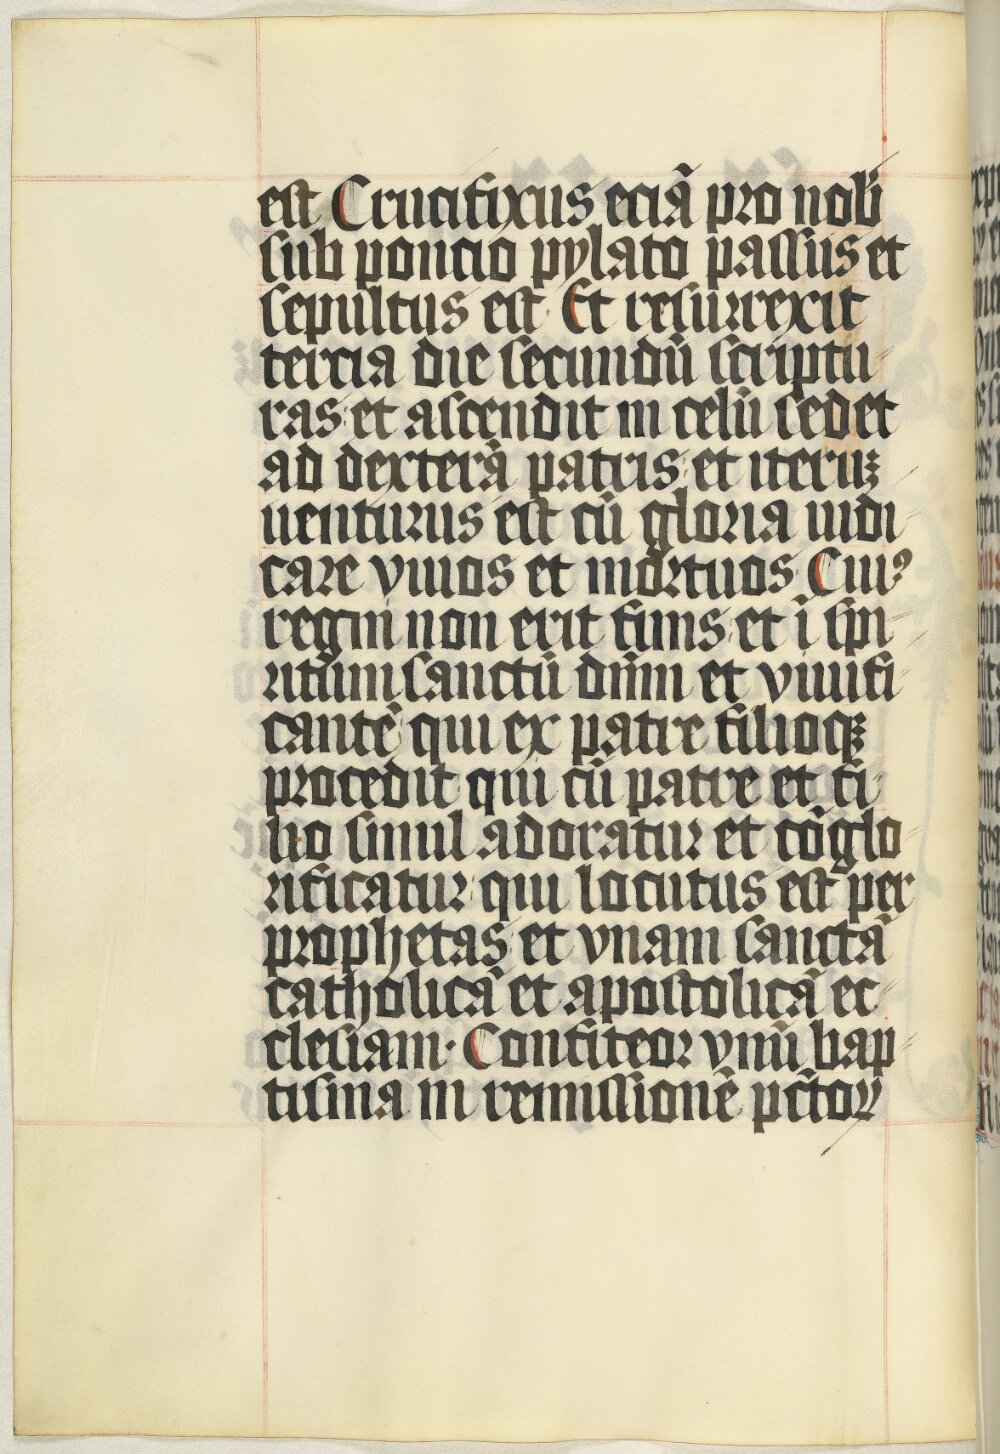 est Crucifixus eciā pro nobˀ
sub poncio pylato passus et
sepultus est· Et resurrexit
tercia die secundū scriptu
ras et ascendit in celū sedet
ad dexterā patris et iteruꝫ
uenturus est cū gloria iudi
care viuos et mortuos Cuiꝰ
regni non erit finis et ī spi
ritum sanctū dn̄m et viuifi
cantē qui ex patre filioqꝫ
procedit qui cū patre et fi
lio simul adoratur et cōglo
rificatur qui locutus est per
prophetas et vnam sanctā
catholicā et apostolicā ec
clesiam· Confiteor vnū bap
tisma in remissionē pctōꝝ